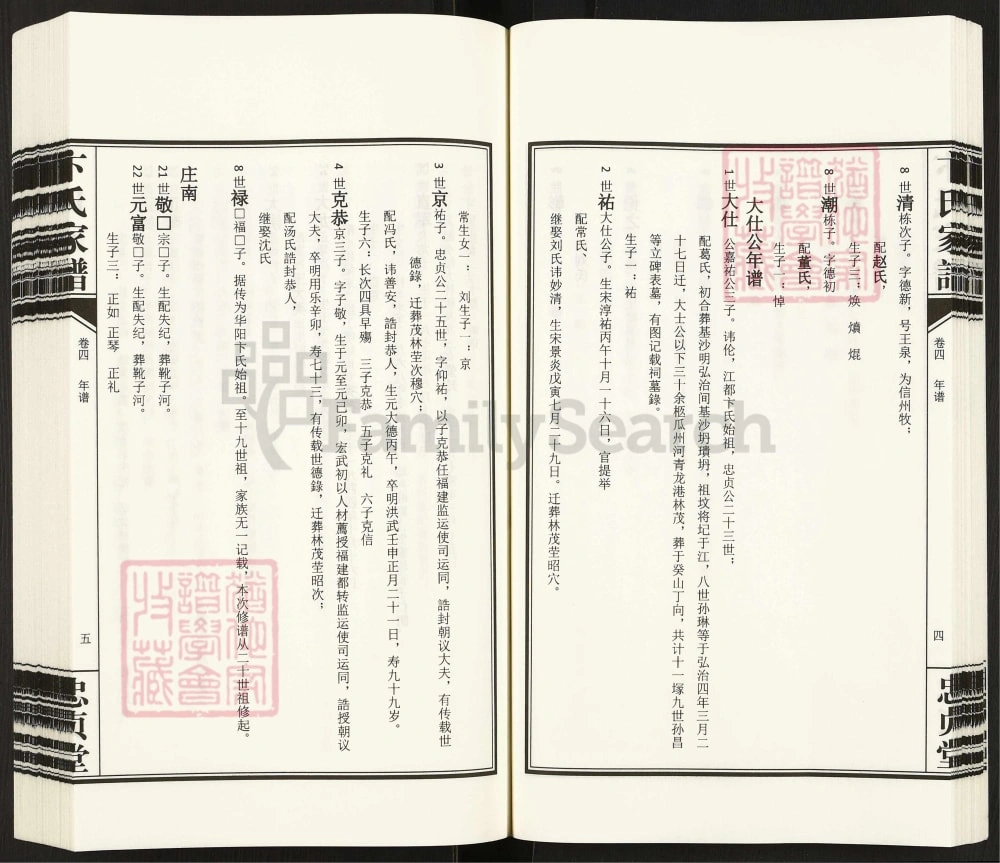 8世清栋次子。字德新，号王泉，为信州牧；
配赵氏，
生子三：焕 熕 焜
8世潮栋子。字德初
配董氏，
生子一：悼
大仕公年谱
1世大仕公嘉祐公三子。讳伦，江都卞氏始祖，忠贞公二十三世；
配葛氏，初合葬基沙明弘治间基沙坍墤坍，祖坟将圮于江，八世孙琳等于弘治四年三月二
十七日迁，大士公以下三十余柩瓜州河青龙港林茂，葬于癸山丁向，共计十一塚九世孙昌
等立碑表墓，有图记载祠墓錄。
生子一：祐
2世祐大仕公子。生宋淳祐丙午十月一十六日，官提举
配常氏、
继娶刘氏讳妙清，生宋景炎戊寅七月二十九日。迁葬林茂茔昭穴。
卷四 年谱
四
忠贞堂
常生女一： 刘生子一：京
3世京祐子。忠贞公二十五世，字仰祐，以子克恭任福建监运使司运同，誥封朝议大夫，有传载世
德錄，迁葬茂林茔次穆穴；
配冯氏，讳善安，誥封恭人，生元大德丙午，卒明洪武壬申正月二十一日，寿九十九岁。
生子六：长次四具早殤 三子克恭 五子克礼 六子克信
4世克恭京三子。字子敬，生于元至元己卯，宏武初以人材薦授福建都转监运使司运同，誥授朝议
大夫，卒明用乐辛卯，寿七十三，有传载世德錄，迁葬林茂茔昭次；
配汤氏誥封恭人，
继娶沈氏
8世禄□福□子。据传为华阳卞氏始祖。至十九世祖，家族无一记载，本次修谱从二十世祖修起。
庄南
21世敬□宗□子。生配失纪，葬靴子河。
22世元富敬□子。生配失纪，葬靴子河。
生子三：正如 正琴 正礼
卞氏家譜
卷四 年谱
五
忠贞堂
FamilySearch